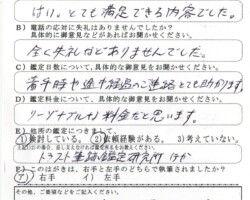 はい。とても満足できる内容でした。
B）電話の応対に失礼はありませんでしたか？
具体的な御意見などがあればお聞かせください。
全く失礼などありませんでした。
C）鑑定日数について、具体的な御意見をお聞かせください。
着手時や途中経過のご連絡とても助かります。
D）鑑定料金について、具体的な御意見をお聞かせください。
リーゾナブルな料金だと思います。
E）他所の鑑定につきまして。
1）検討している。 2）依頼経験がある。 3）考えていない。
トラスト筆跡鑑定研究所 ほか
F）このはがきは、右手と左手のどちらで執筆されましたか？
ア）右手 イ）左手
その他、ご要望などをご記入ください。